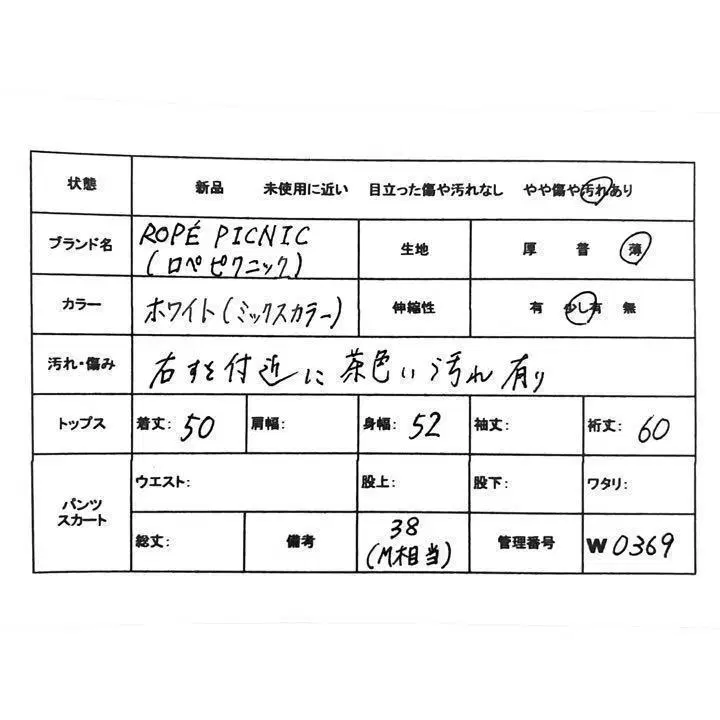 状態 新品 未使用に近い 目立った傷や汚れなし やや傷や汚れあり
ブランド名 ROPÉ PICNIC (ロペピクニック) 生地 厚 普 薄
カラー ホワイト(ミックスカラー) 伸縮性 有 少し有 無
汚れ・傷み 右すそ付近に茶色い汚れ有り
トップス 着丈: 50 肩幅: 身幅: 52 袖丈: 裄丈: 60
パンツ スカート ウエスト: 股上: 股下: ワタリ:
総丈: 備考 38 (M相当) 管理番号 W 0369